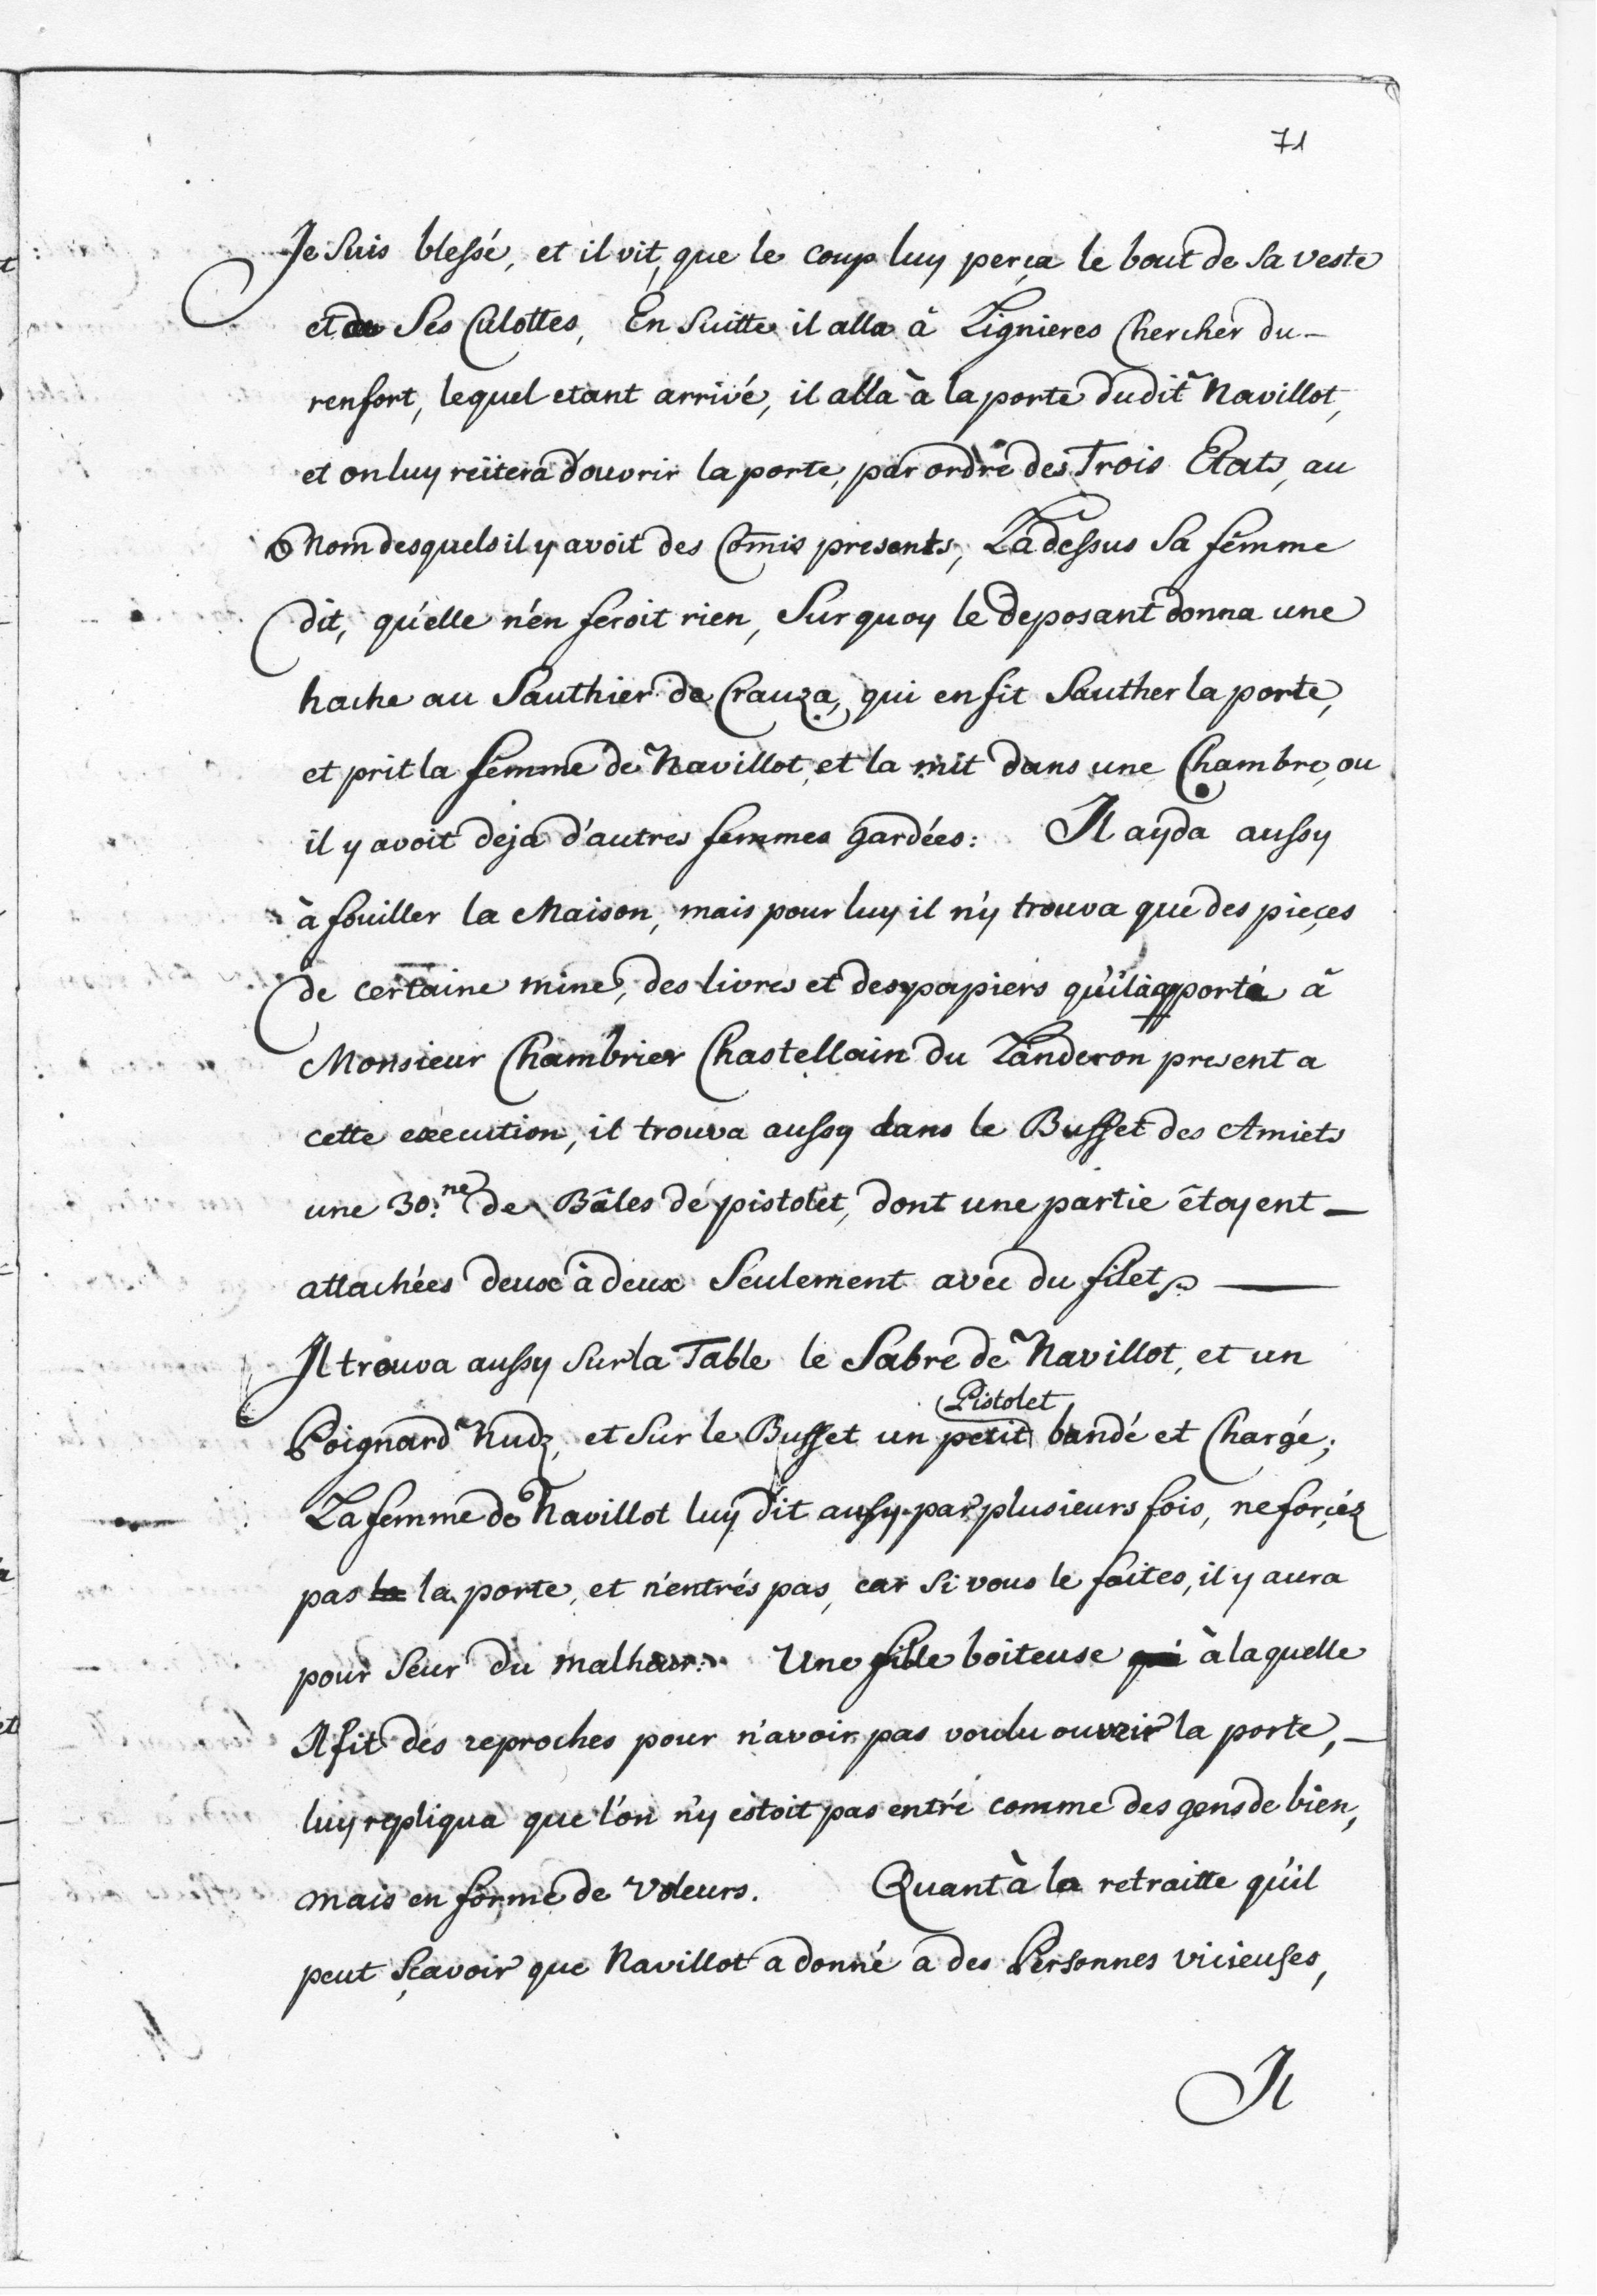 71
Je Suis blessé, et il vit, que le coup luy perça le bout de Sa veste
et de Ses Culottes, En Suitte il alla à Lignieres Chercher du-
renfort, lequel etant arrivé, il alla à la porte dudit Navillot,
et on luy reïtera d'ouvrir la porte, par ordre des Trois Etats, au
Nom desquels il y avoit des Com̄is presents, La dessus Sa femme
dit, qu'elle n'en feroit rien, Sur quoy le deposant donna une
hache au Sauthier de Crauza, qui en fit Sauther la porte,
et prit la femme de Navillot, et la mit dans une Chambre, ou
il y avoit deja d'autres femmes gardées: Il ayda aussy
à fouiller la Maison, mais pour luy il n'y trouva que des pieçes
de certaine mine, des livres et des papiers qu'il apporta à
Monsieur Chambrier Chastellain du Landeron present a
cette execution, il trouva aussy dans le Buffet des Amiets
une 30.ne de Bâles de pistolet, dont une partie étoyent —
attachées deux à deux Seulement avec du filet ——
Il trouva aussy Sur la Table le Sabre de Navillot, et un
Pistolet
Poignard Nudz, et Sur le Buffet un petit bandé et Chargé;
La femme de Navillot luy dit aussy par plusieurs fois, ne forçéz
pas la la porte, et n'entrés pas, car Si vous le faites, il y aura
pour Seur du malheur: Une fille boiteuse qui à laquelle
Il fit des reproches pour n'avoir pas voulu ouvrir la porte, —
luy repliqua que l'on n'y estoit pas entré comme des gens de bien,
mais en forme de Voleurs. Quant à la retraitte qu'il
peut Sçavoir que Navillot a donné a des Personnes vicieuses,
Il